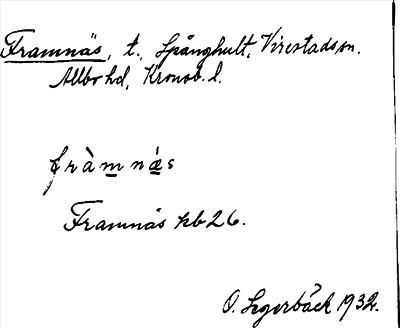 Framnäs, t. Spånghult, Virestads sn.
Allbo hd, Kronob. l.
fràmnä́s
Framnäs hb 26.
O. Segerbäck 1932.